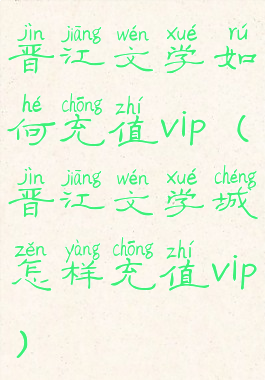 jìn jiāng wén xué rú
晋江文学如
hé chōng zhí
何充值vip（
jìn jiāng wén xué chéng
晋江文学城
zěn yàng chōng zhí
怎样充值vip
）